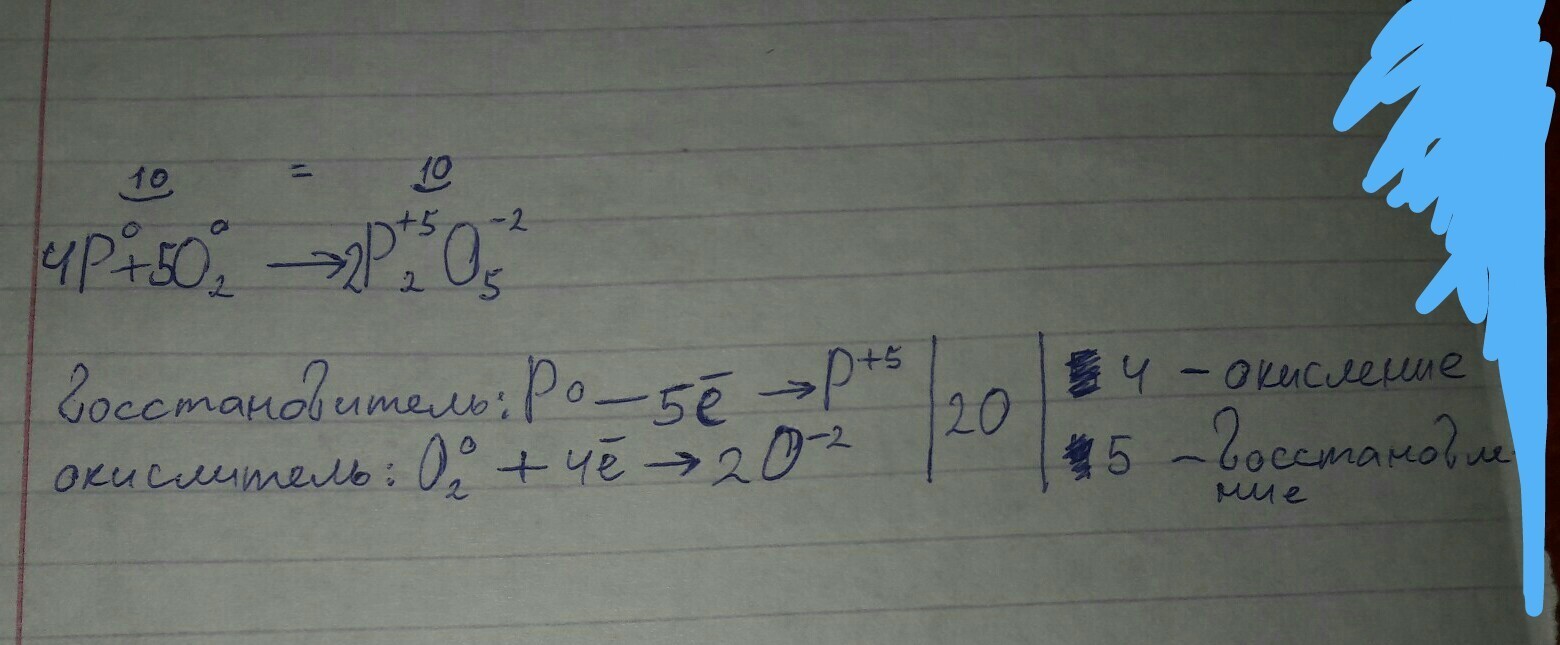 10 = 10
4P⁰+5O₂⁰ → 2P₂⁺⁵O₅⁻²
восстановитель: P⁰ — 5ē → P⁺⁵ | 20 | 4 – окисление
окислитель: O₂⁰ + 4ē → 2O⁻² | 5 – восстановле
ние